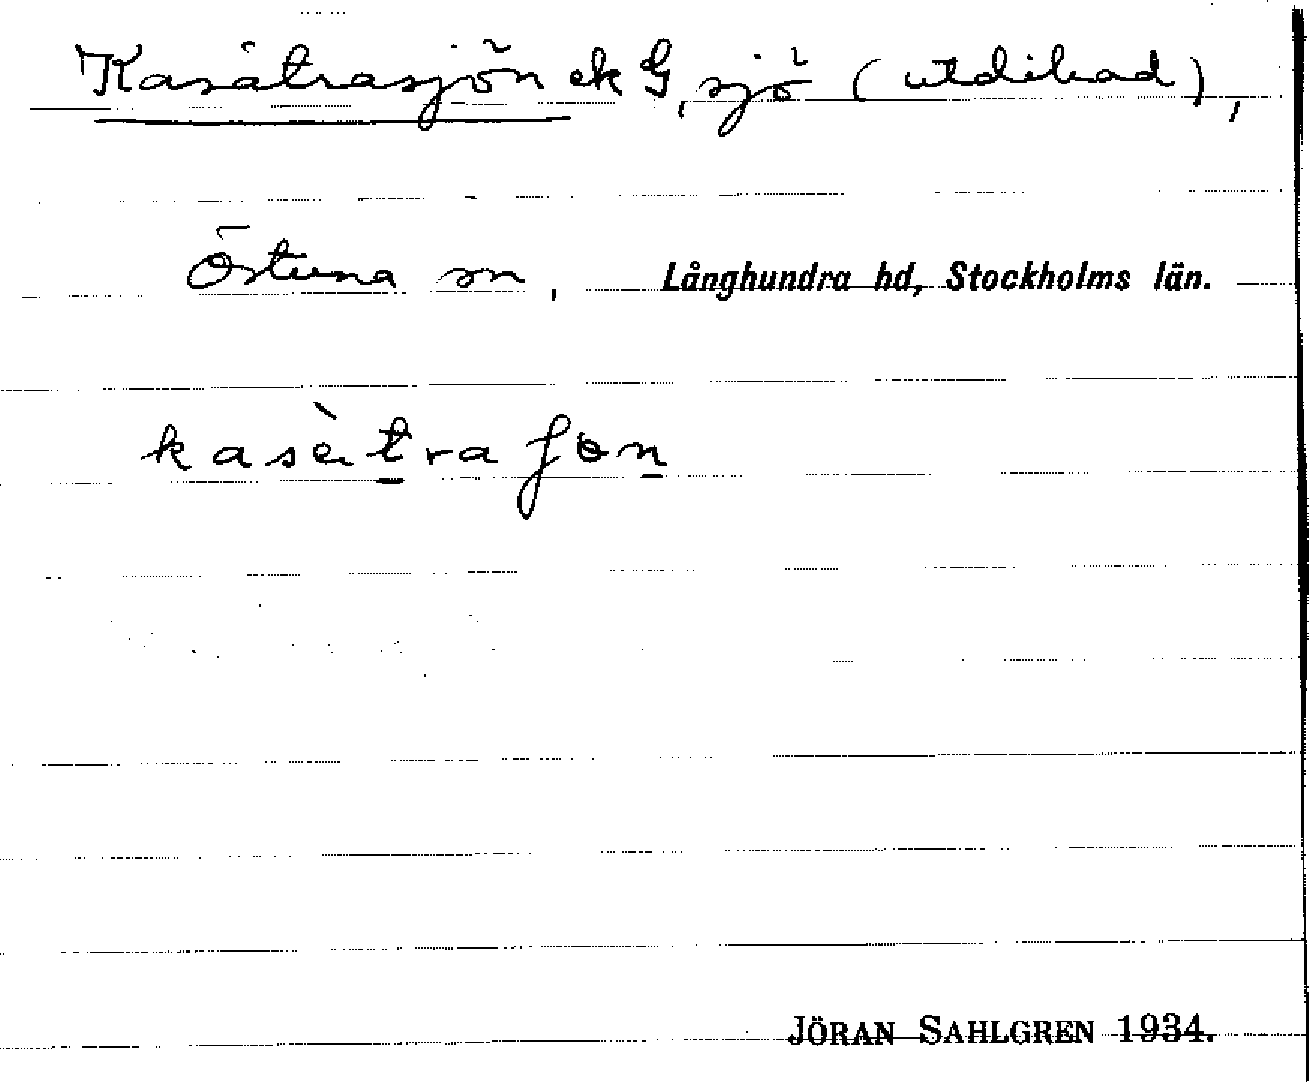 Kasätrasjön ek G, sjö (utdikad),
Östuna sn, Långhundra hd, Stockholms län.
kasètra ʃɵn
JÖRAN SAHLGREN 1934.